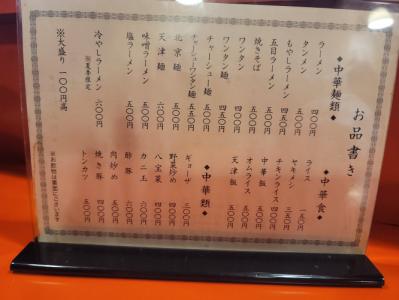 お品書き
◆中華麺類◆
ラーメン 四〇〇円
タンメン 四五〇円
もやしラーメン 四五〇円
五目ラーメン 五〇〇円
焼きそば 五〇〇円
ワンタン 四〇〇円
ワンタン麺 四五〇円
チャーシュー麺 五〇〇円
チャーシューワンタン麺 五五〇円
北京麺 五〇〇円
天津麺 六〇〇円
味噌ラーメン 五〇〇円
塩ラーメン 五〇〇円
冷やしラーメン 六〇〇円
※夏季限定
※大盛り 一〇〇円高
◆中華食◆
ライス 一五〇円
ヤキメシ 三五〇円
チキンライス 四〇〇円
中華飯 五〇〇円
オムライス 五〇〇円
天津飯 五〇〇円
◆中華類◆
ギョーザ 三〇〇円
野菜炒め 四〇〇円
八宝菜 四〇〇円
カニ玉 六〇〇円
酢豚 六〇〇円
肉炒め 五〇〇円
焼き豚 五〇〇円
トンカツ 五〇〇円
※お飲物は裏面にございます